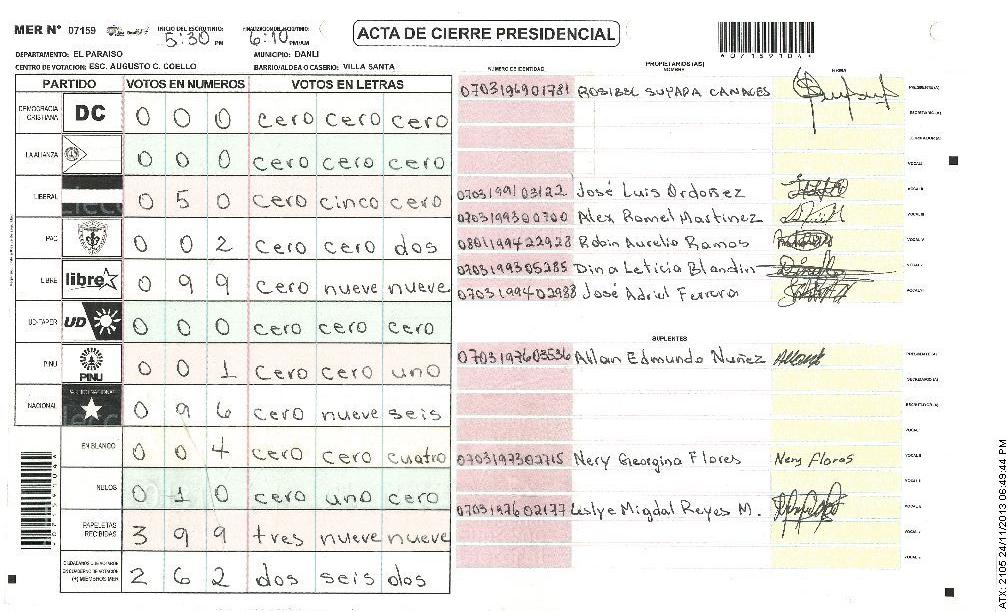 MER Nº 07159
INICIO DEL ESCRUTINIO: 5:30 PM
FINALIZACION DEL ESCRUTINIO: 6:10 PM/AM
ACTA DE CIERRE PRESIDENCIAL
DEPARTAMENTO: EL PARAISO
MUNICIPIO: DANLI
CENTRO DE VOTACION: ESC. AUGUSTO C. COELLO
BARRIO/ALDEA O CASERIO: VILLA SANTA
PARTIDO VOTOS EN NUMEROS VOTOS EN LETRAS
DEMOCRACIA CRISTIANA DC 0 0 0 cero cero cero
LA ALIANZA 0 0 0 cero cero cero
LIBERAL 0 5 0 cero cinco cero
PAC 0 0 2 cero cero dos
LIBRE libre 0 9 9 cero nueve nueve
UD-FAPER UD 0 0 0 cero cero cero
PINU PINU 0 0 1 cero cero uno
NACIONAL 0 9 6 cero nueve seis
EN BLANCO 0 0 4 cero cero cuatro
NULOS 0 1 0 cero uno cero
PAPELETAS RECIBIDAS 3 9 9 tres nueve nueve
(+) MIEMBROS MER 2 6 2 dos seis dos
NUMERO DE IDENTIDAD PROPIETARIOS (AS) NOMBRE FIRMA
0703196901781 ROSIBEL CANALES PRESIDENTE (A)
SECRETARIO (A)
ESCRUTADOR (A)
VOCAL I
0703199103122 José Luis Ordoñez VOCAL II
0703199300700 Alex Romel Martinez VOCAL III
0801199422928 Robin Aurelio Ramos VOCAL IV
0703199305285 Dina Leticia Blandin VOCAL V
0703199402988 José Adriel Ferrera VOCAL VI
SUPLENTES
0703197603536 Allan Edmundo Nuñez PRESIDENTE (A)
SECRETARIO (A)
ESCRUTADOR (A)
VOCAL I
0703197302715 Nery Georgina Flores Nery Flores VOCAL II
VOCAL III
0703197602177 Leslye Migdal Reyes M. VOCAL IV
VOCAL V
VOCAL VI
ATX: 2105 24/11/2013 06:49:44 PM